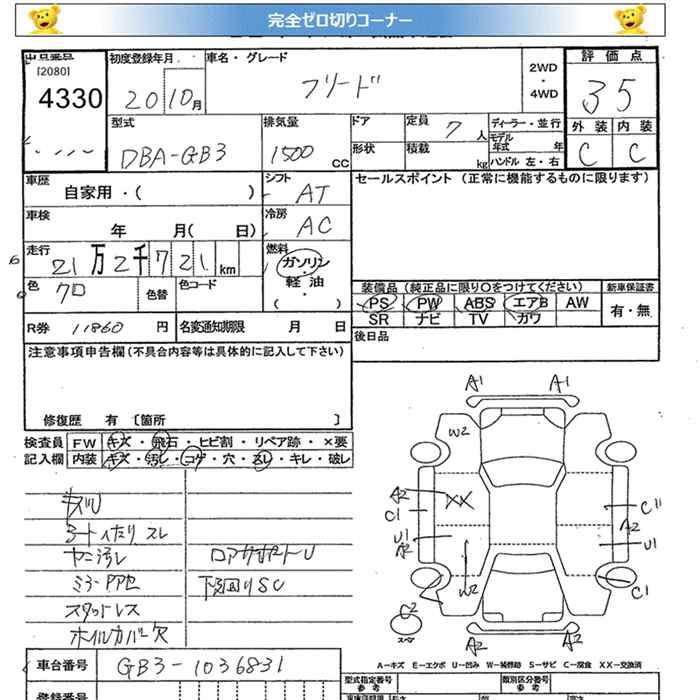 完全ゼロ切りコーナー
出品番号 初度登録年月 車名・グレード 2WD・4WD 評価点
[2080]
4330 20 10月 フリード 35
型式 排気量 ドア 定員 7人 ディーラー・並行 外装 内装
DBA-GB3 1500CC 形状 積載 kg モデル年式 年 ハンドル 左・右 C C
車歴 シフト セールスポイント (正常に機能するものに限ります)
自家用・( ) AT
車検 冷房
年 月( 日) AC
走行 燃料
21万2千721km ガソリン・軽油・( )
色 色替 色コード 装備品 (純正品に限り○をつけてください) 新車保証書
クロ PS PW ABS エアB AW 有・無
SR ナビ TV カワ
R券 11860円 名変通知期限 月 日 後日品
注意事項申告欄(不具合内容等は具体的に記入して下さい)
修復歴 有 〔箇所 〕
検査員 FW キズ・飛石・ヒビ割・リペア跡・×要
記入欄 内装 キズ・汚レ・コゲ・穴・スレ・キレ・破レ
キズU
シートイタリ スレ
ヤニ汚レ ロアサポートU
下廻りSC
スタッドレス
ホイルカバー欠
A1 A1
W2
A2 XX C1
C1 A2
U1 U1
A2 W2
C1
C2
スペア
A2 A2
A-キズ E-エクボ U-凹み W-補修跡 S-サビ C-腐食 XX-交換済
車台番号 GB3-1036831 型式指定番号 参考 類別区分番号 参考
登録番号 長さ 幅 高さ